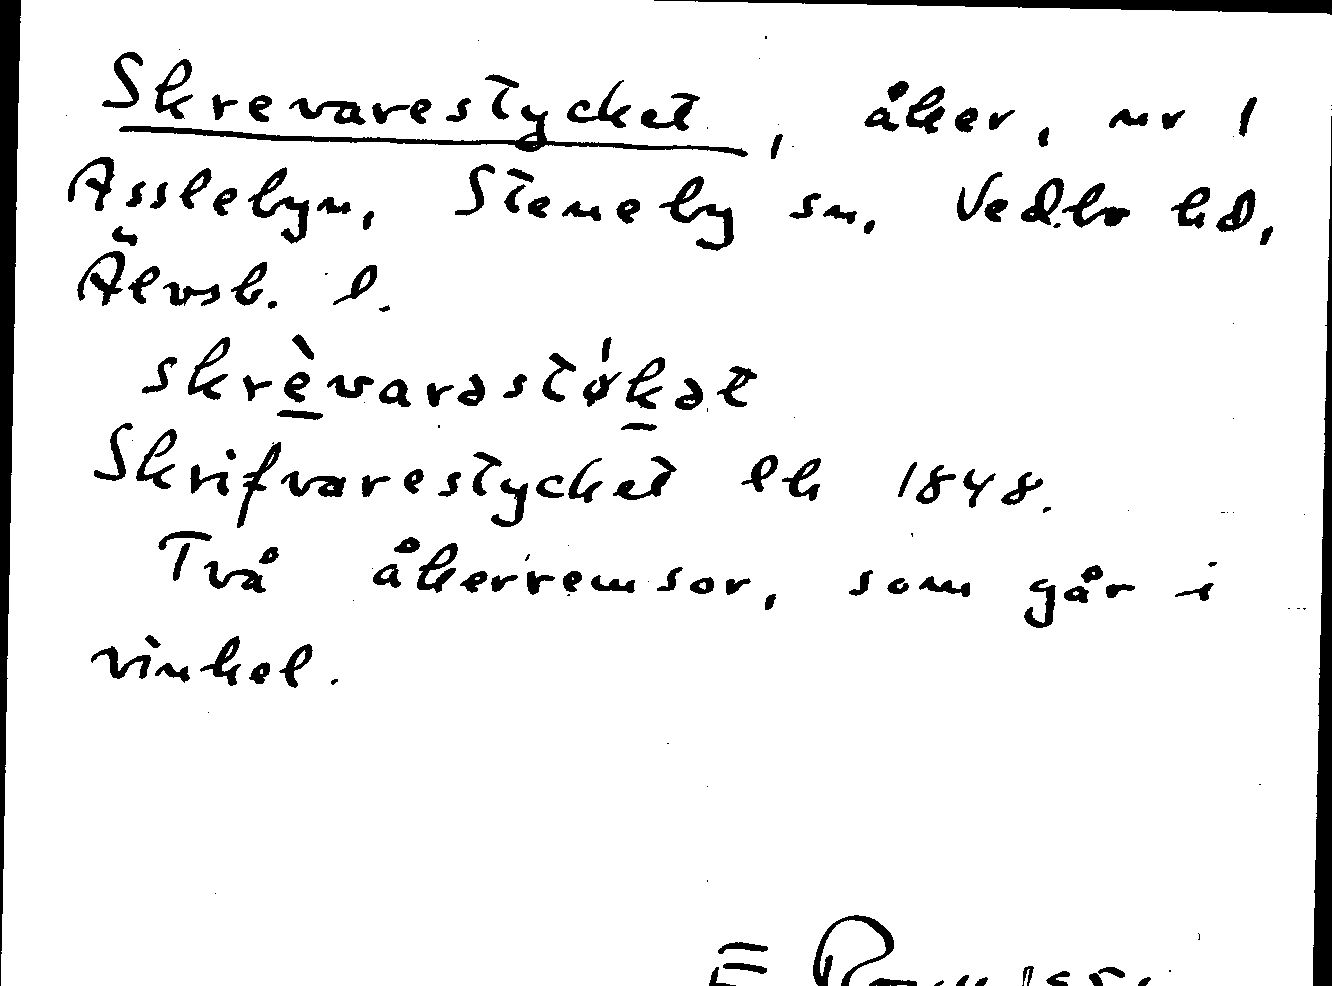 Skrevarestycket, åker, nr 1
Åsslebyn, Steneby sn, Vedbo hd,
Älvsb. l.
skrèvarəstø̍kət
Skrifvarestycket lk 1848.
Två åkerremsor, som går i
vinkel.